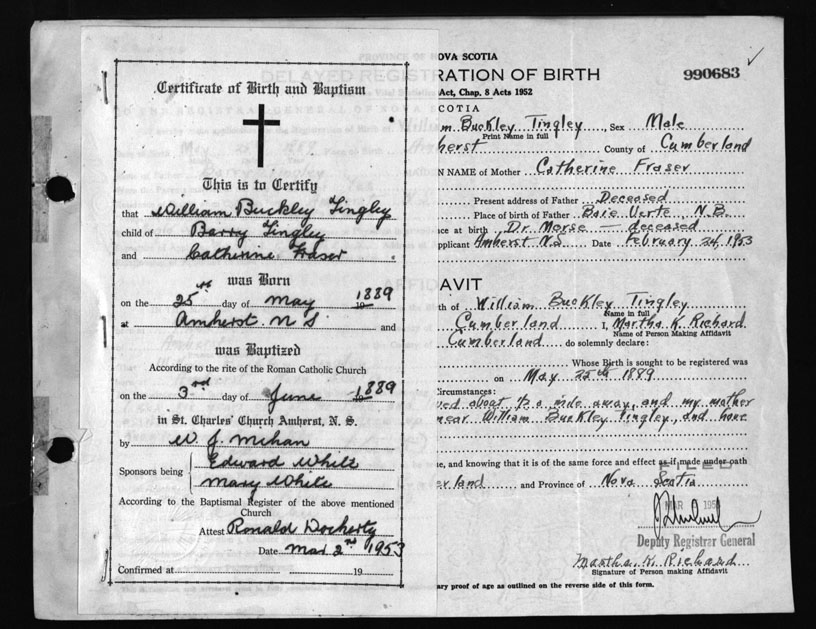 Certificate of Birth and Baptism
This is to Certify
that William Buckley Tingley
child of Barry Tingley
and Catherine Fraser
was Born
on the 25th day of May 1889
at Amherst. N S and
was Baptized
According to the rite of the Roman Catholic Church
on the 3rd day of June 1889
in St. Charles' Church Amherst, N. S.
by W. J. Mihan
Sponsors being Edward White
Mary White
According to the Baptismal Register of the above mentioned
Church
Attest Ronald Docherty
Date Mar 2nd 1953
Confirmed at 19
PROVINCE OF NOVA SCOTIA
DELAYED REGISTRATION OF BIRTH
990683
Act, Chap. 8 Acts 1952
SCOTIA
m Buckley Tingley, Sex Male
Print Name in full
herst County of Cumberland
N NAME of Mother Catherine Fraser
Present address of Father Deceased
Place of birth of Father Baie Verte, N.B.
ce at birth Dr. Morse — deceased
pplicant Amherst N.S. Date February 24, 1953
AVIT
th of William Buckley Tingley
Name in full
Cumberland I, Martha K. Richard
Name of Person Making Affidavit
Cumberland do solemnly declare:
Whose Birth is sought to be registered was
on May 25th 1889
ircumstances:
ed about ½ a mile away, and my mother
near William Buckley Tingley, and have
e, and knowing that it is of the same force and effect as if made under oath
erland and Province of Nova Scotia
FILED
MAR 195
Deputy Registrar General
Martha K. Richard
Signature of Person making Affidavit
ary proof of age as outlined on the reverse side of this form.